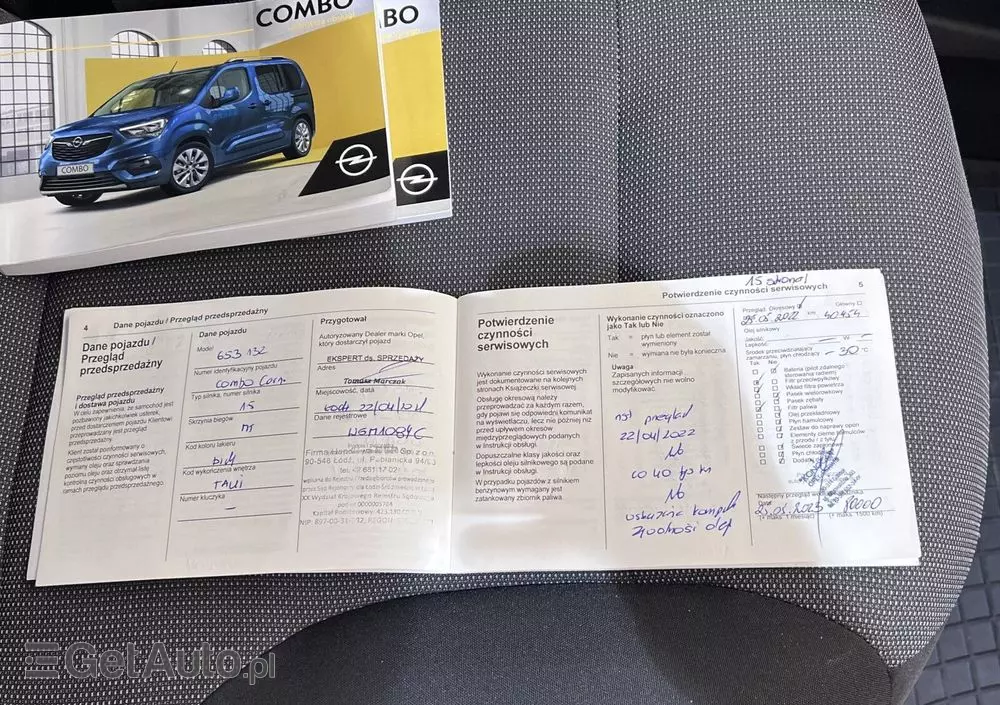 COMBO
COMBO
COMBO
4 Dane pojazdu / Przegląd przedsprzedażny
Dane pojazdu /
Przegląd
przedsprzedażny
Przegląd przedsprzedażny
i dostawa pojazdu
W celu zapewnienia, że samochód jest
pozbawiony jakichkolwiek usterek,
przed dostarczeniem pojazdu Klientowi
przeprowadzany jest przegląd
przedsprzedażny.
Klient został poinformowany o
częstotliwości czynności serwisowych,
wymiany oleju oraz sprawdzania
poziomu oleju oraz otrzymał listę
kontrolną czynności obsługowych w
ramach przeglądu przedsprzedażnego.
Dane pojazdu
Model
653 132
Numer identyfikacyjny pojazdu
Combo
Typ silnika, numer silnika
1.5
Skrzynia biegów
M5
Kod koloru lakieru
Kod wykończenia wnętrza
TAUI
Numer kluczyka
–
Przygotował
Autoryzowany Dealer marki Opel,
który dostarczył pojazd
EKSPERT ds. SPRZEDAŻY
Adres
Tomasz Marczak
Miejscowość, data
Łódź 22/04/2021
Dane rejestrowe
90-548 Łódź, ul. Pabianicka 94/
15 stronal
Potwierdzenie czynności serwisowych 5
Potwierdzenie
czynności
serwisowych
Wykonanie czynności serwisowych
jest dokumentowane na kolejnych
stronach Książeczki serwisowej.
Obsługę okresową należy
przeprowadzać za każdym razem,
gdy pojawi się odpowiedni komunikat
na wyświetlaczu, lecz nie później niż
przed upływem okresów
międzyprzeglądowych podanych
w Instrukcji obsługi.
Dopuszczalne klasy jakości oraz
lepkości oleju silnikowego są podane
w Instrukcji obsługi.
W przypadku pojazdów z silnikiem
benzynowym wymagany jest
zatankowany zbiornik paliwa.
Wykonanie czynności oznaczono
jako Tak lub Nie
Tak = płyn lub element został
wymieniony
Nie = wymiana nie była konieczna
Uwaga
Zapisanych informacji
szczegółowych nie wolno
modyfikować.
nst przegląd
22/04/2022
lub
co 40 tys km
lub
wskazania komputera
Przegląd: Okresowy Główny
25.05.2022 km 40454
Olej silnikowy
Jakość W-
Lepkość
Środek przeciwdziałający
zamarzaniu, płyn chłodzący -30°C
Tak Nie
Bateria (pilot zdalnego
sterowania radiem)
Filtr przeciwpyłkowy
Wkład filtra powietrza
Pasek wielorowkowy
Pasek zębaty
Filtr paliwa
Olej przekładniowy
Płyn hamulcowy
Zestaw do naprawy opon
Świece zapłonowe
Płyn chłodzący
Następny przegląd
Data
25.05.2023 80000
(+ maks. 1 miesiąc) (+ maks. 1500 km)
GetAuto.pl